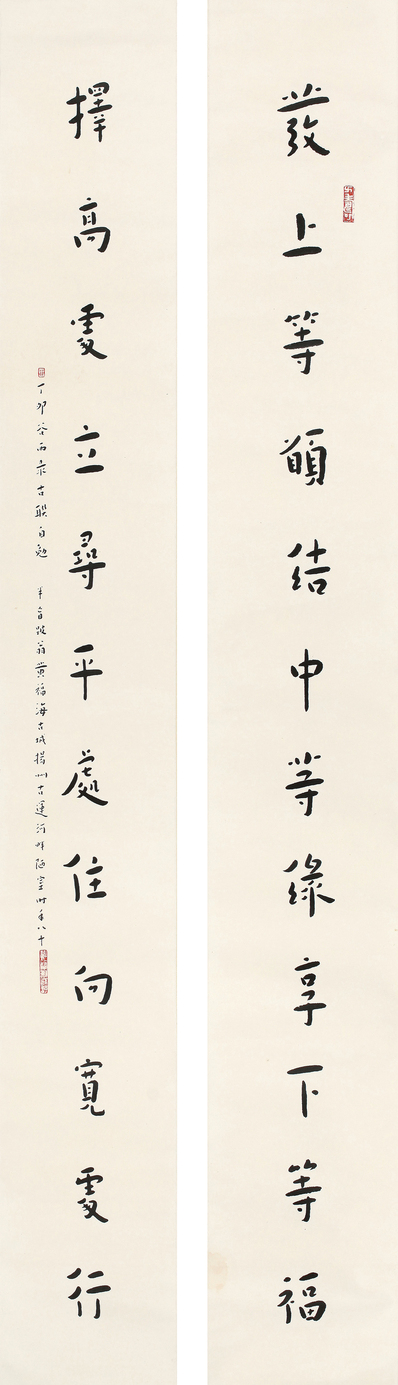 發上等願結中等緣享下等福
擇高處立尋平處住向寬處行
丁卯谷雨录古联自勉 半盲跛翁黄福海古城揚州古運河畔陋室时年八十